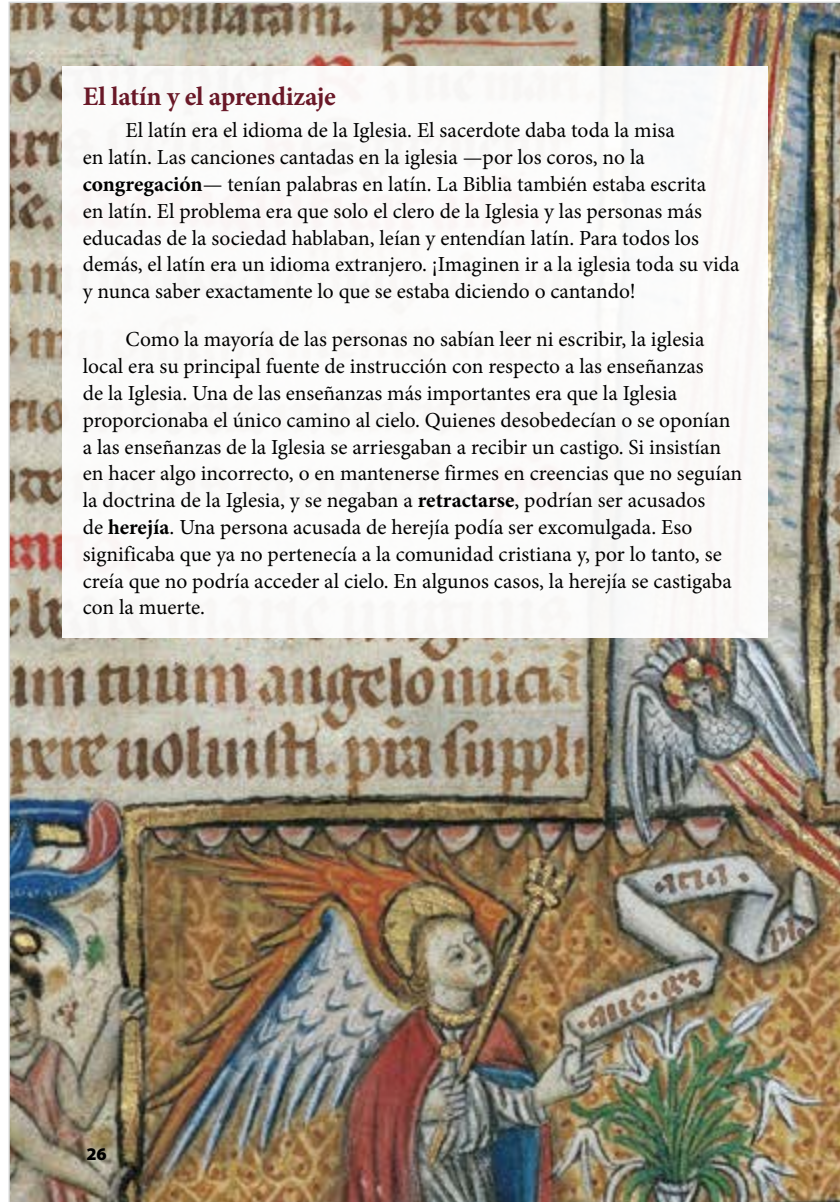 m desponsatam. ps
El latín y el aprendizaje
El latín era el idioma de la Iglesia. El sacerdote daba toda la misa
en latín. Las canciones cantadas en la iglesia —por los coros, no la
congregación— tenían palabras en latín. La Biblia también estaba escrita
en latín. El problema era que solo el clero de la Iglesia y las personas más
educadas de la sociedad hablaban, leían y entendían latín. Para todos los
demás, el latín era un idioma extranjero. ¡Imaginen ir a la iglesia toda su vida
y nunca saber exactamente lo que se estaba diciendo o cantando!
Como la mayoría de las personas no sabían leer ni escribir, la iglesia
local era su principal fuente de instrucción con respecto a las enseñanzas
de la Iglesia. Una de las enseñanzas más importantes era que la Iglesia
proporcionaba el único camino al cielo. Quienes desobedecían o se oponían
a las enseñanzas de la Iglesia se arriesgaban a recibir un castigo. Si insistían
en hacer algo incorrecto, o en mantenerse firmes en creencias que no seguían
la doctrina de la Iglesia, y se negaban a retractarse, podrían ser acusados
de herejía. Una persona acusada de herejía podía ser excomulgada. Eso
significaba que ya no pertenecía a la comunidad cristiana y, por lo tanto, se
creía que no podría acceder al cielo. En algunos casos, la herejía se castigaba
con la muerte.
um tuum angelo
uoluisti. pia suppli
26